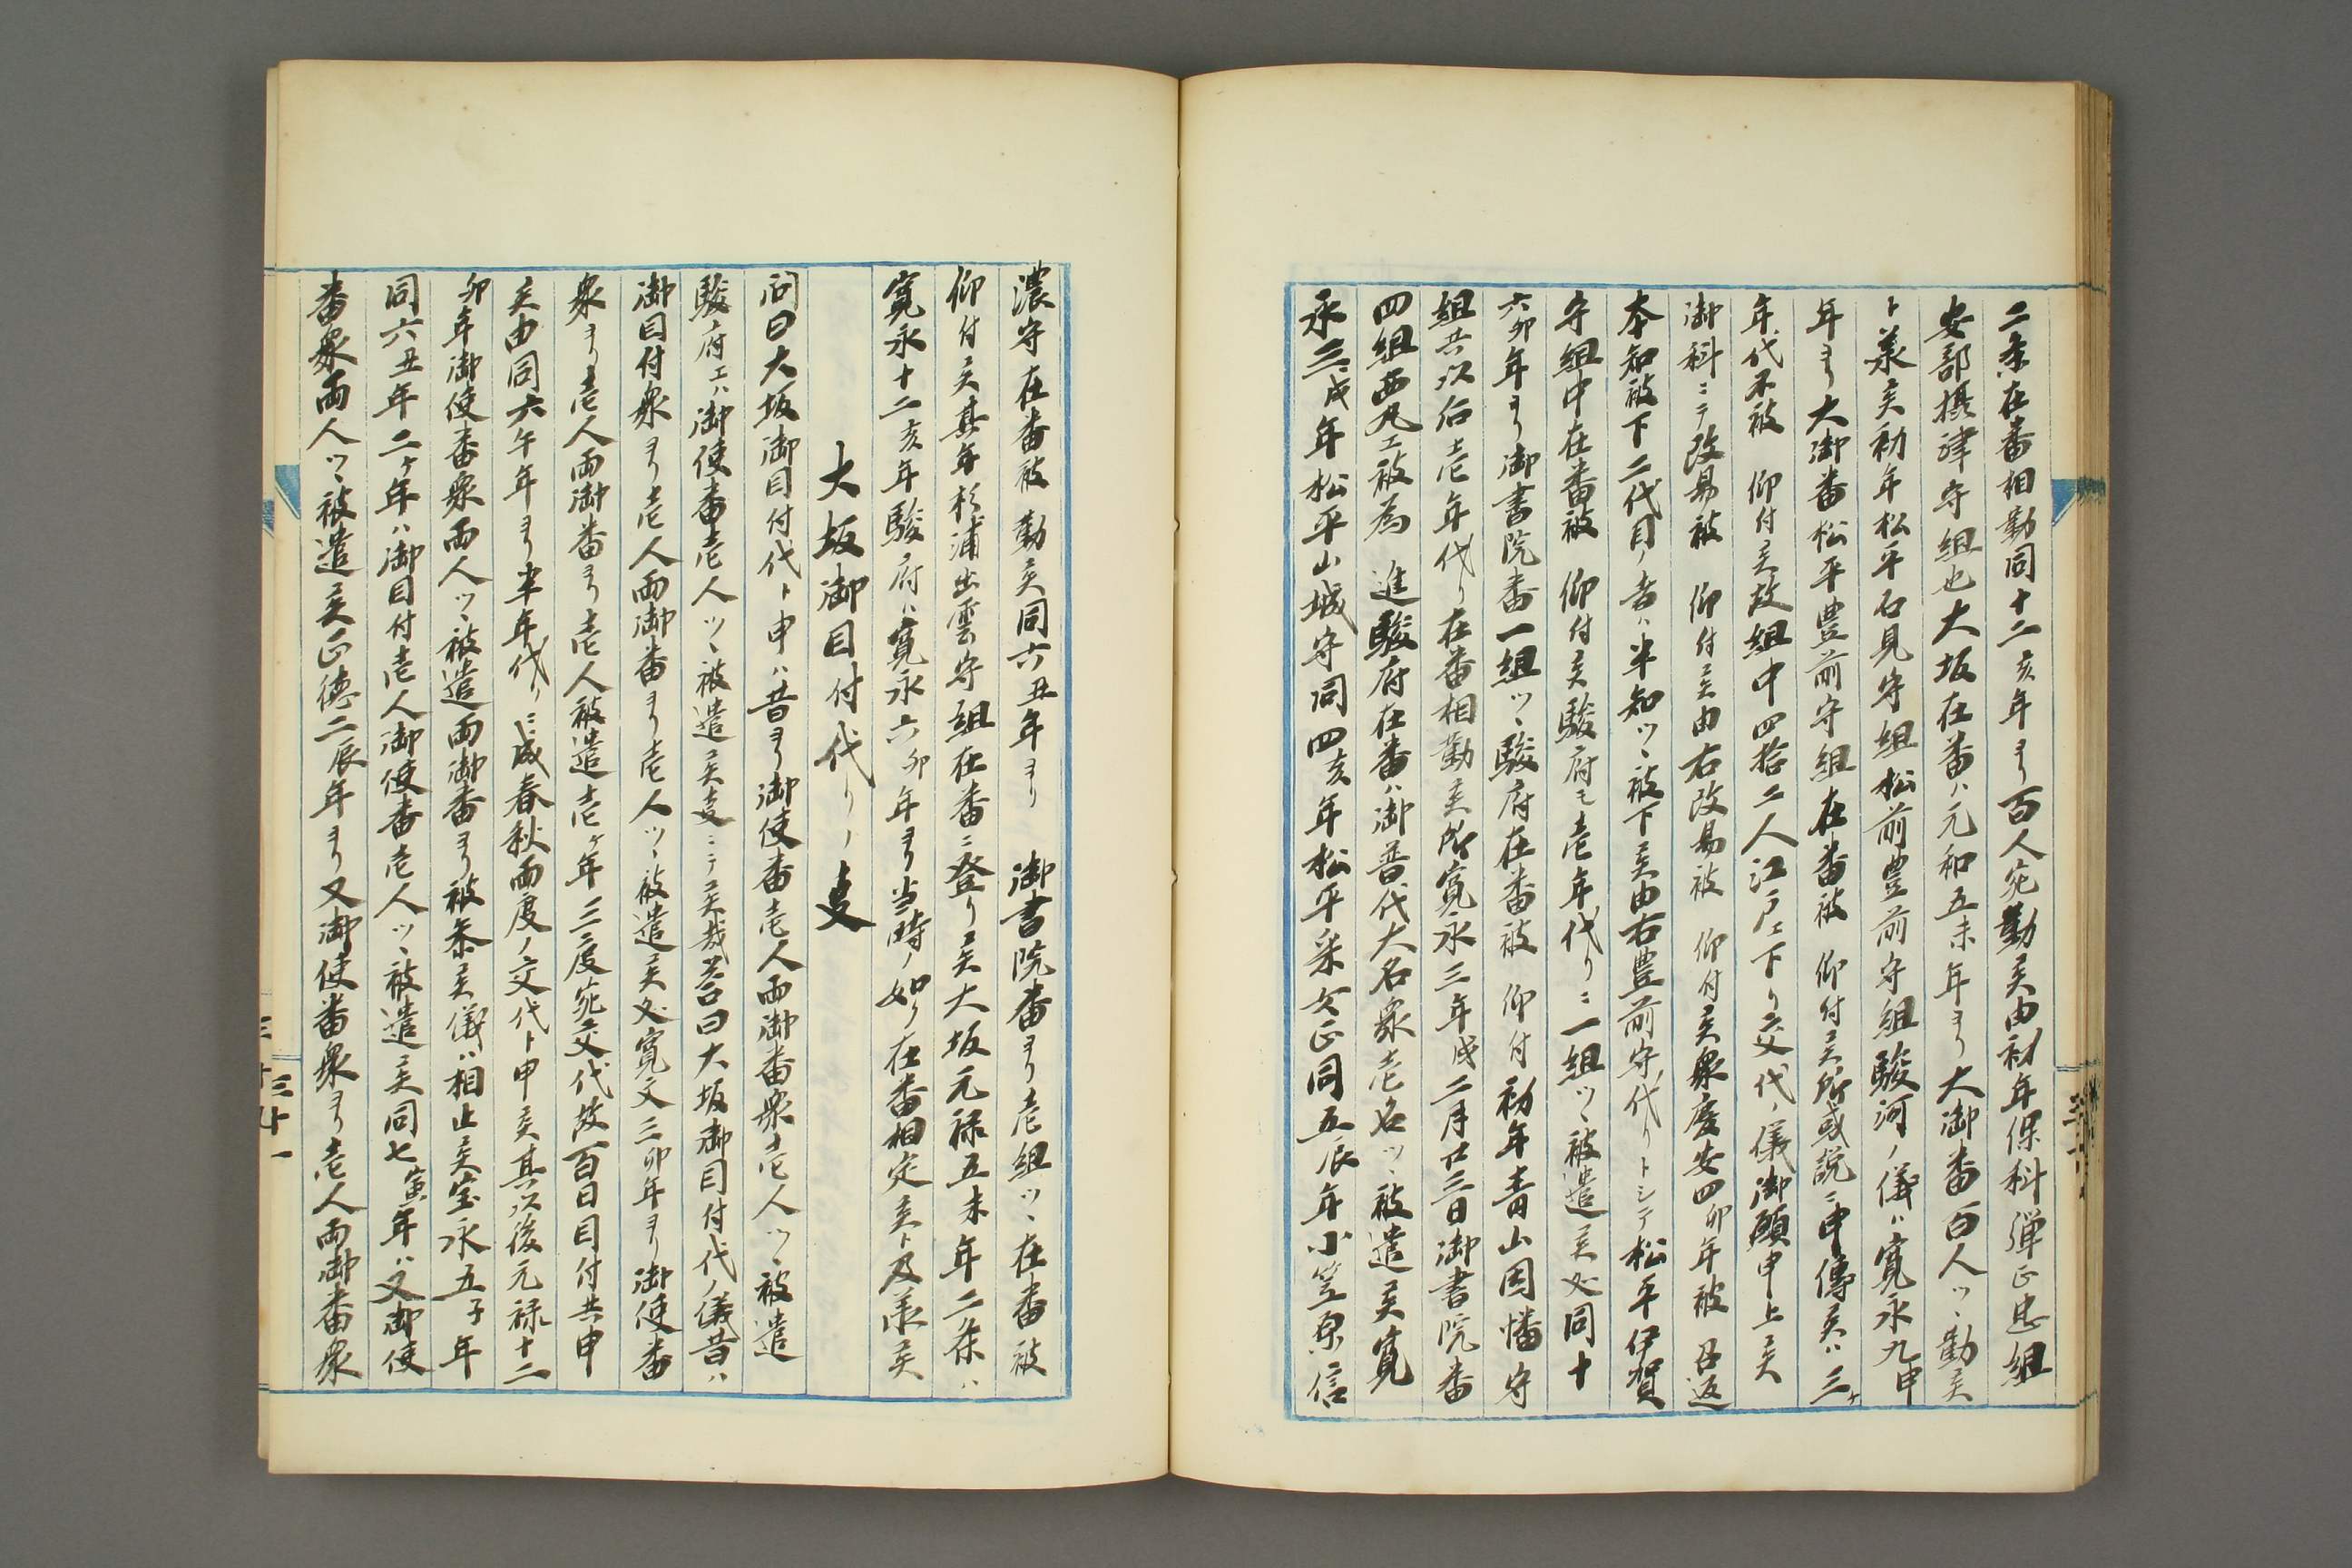 二条在番相勤同十二亥年ヨリ百人宛勤候由初年保科弾正忠組
安部摂津守組也大坂在番ハ元和五未年ヨリ大御番百人ツヽ勤候
ト承候初年松平石見守組松前豊前守組駿河ノ儀ハ寛永九申
年ヨリ大御番松平豊前守組在番被 仰付候所或説ニ申傳候ハ三ケ
年代不被 仰付候故組中四拾二人江戸エ下リ交代ノ儀御願申上候
御科ニテ改易被 仰付候由右改易被 仰付候衆慶安四卯年被 召返
本知被下二代目ノ者ハ半知ツヽ被下候由右豊前守代リトシテ松平伊賀
守組中在番被 仰付候駿府モ壱年代リニ一組ツヽ被遣候処同十
六卯年ヨリ御書院番一組ツヽ駿府在番被 仰付初年青山因幡守
組共以后壱年代リ在番相勤候所寛永三年戌二月廿三日御書院番
四組西丸エ被為 進駿府在番ハ御普代大名衆壱名ツヽ被遣候寛
永三戌年松平山城守同四亥年松平采女正同五辰年小笠原信
濃守在番被 勤候同六丑年ヨリ 御書院番ヨリ壱組ツヽ在番被
仰付候其年杉浦出雲守組在番ニ登リ候大坂元禄五未年二条ハ
寛永十二亥年駿府ハ寛永六卯年ヨリ当時ノ如ク在番相定候ト及承候
大坂御目付代リノ叓
問曰大坂御目付代ト申ハ昔ヨリ御使番壱人両御番衆壱人ツヽ被遣
駿府エハ御使番壱人ツヽ被遣候叓ニテ候哉答曰大坂御目付代ノ儀昔ハ
御目付衆ヨリ壱人両御番ヨリ壱人ツヽ被遣候処寛文三卯年ヨリ御使番
衆ヨリ壱人両御番ヨリ壱人被遣壱ケ年三度宛交代故百日目付共申
候由同六午年ヨリ半年代リニ成春秋両度ノ交代ト申候其以後元禄十二
卯年御使番衆両人ツヽ被遣両御番ヨリ被参候儀ハ相止候宝永五子年
同六丑年二ケ年ハ御目付壱人御使番壱人ツヽ被遣候同七寅年ハ又御使
番衆両人ツヽ被遣候正徳二辰年ヨリ又御使番衆ヨリ壱人両御番衆
三十一